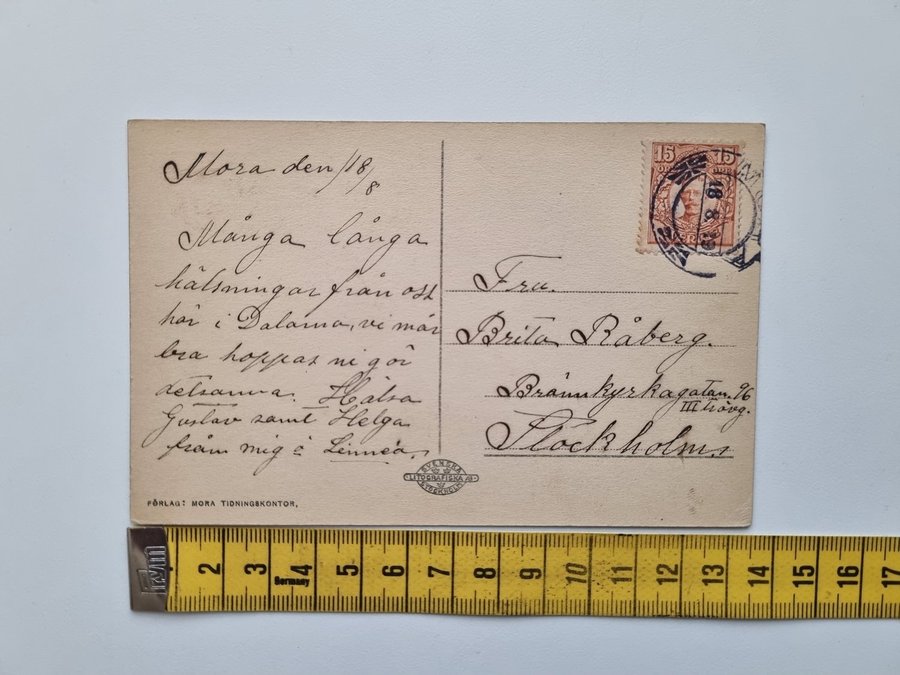 Mora den 18/8
Många långa
hälsningar från oss
här i Dalarna, vi mår
bra hoppas ni gör
detsamma. Hälsa
Gustav samt Helga
från mig o Linnéa.
FÖRLAG: MORA TIDNINGSKONTOR.
SVENSKA
LITOGRAFISKA AB
STOCKHOLM
15 15
18 8
Fru.
Brita Råberg.
Brännkyrkagatan 96
III tr ö.v.g.
Stockholm.
2 3 4 5 6 7 8 9 10 11 12 13 14 15 16 17
Germany